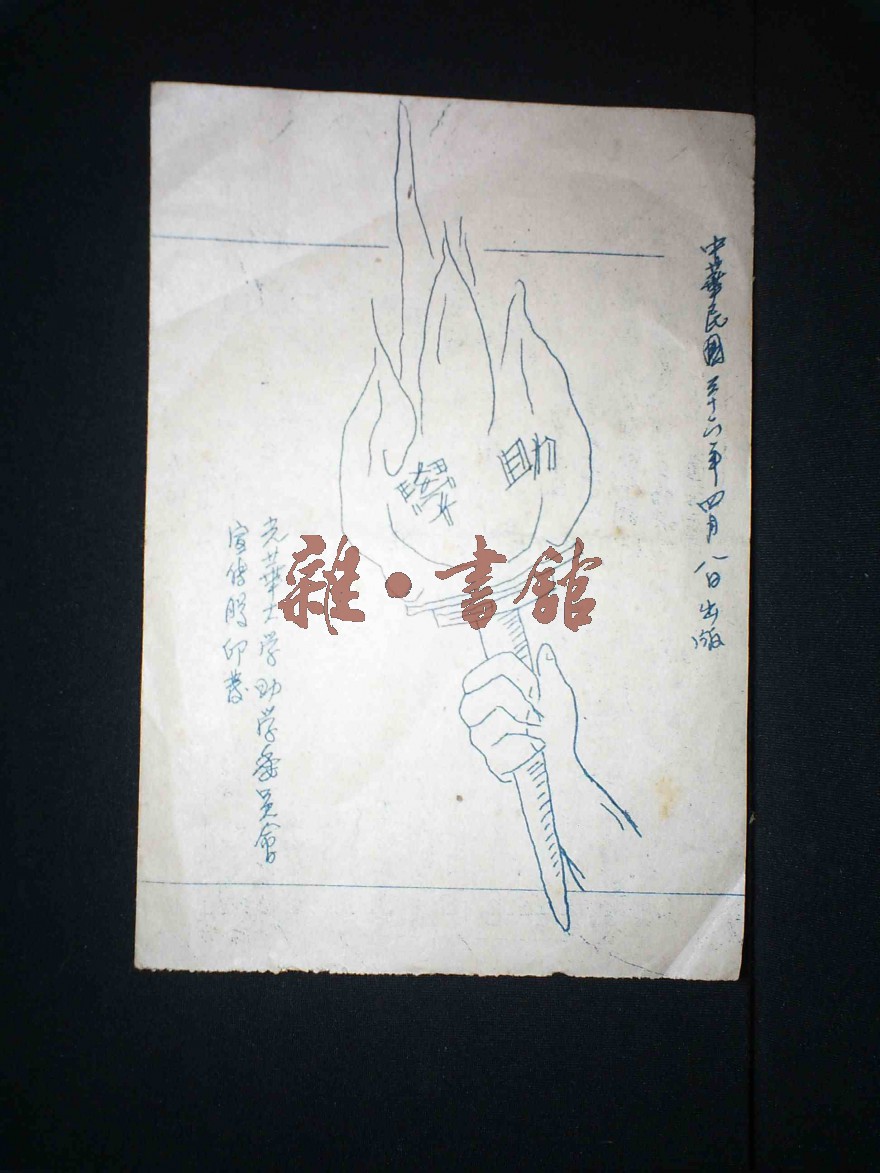 中華民國三十六年四月八日出版
助學
光華大学助学委員會
宣傳股印發
雜·書館